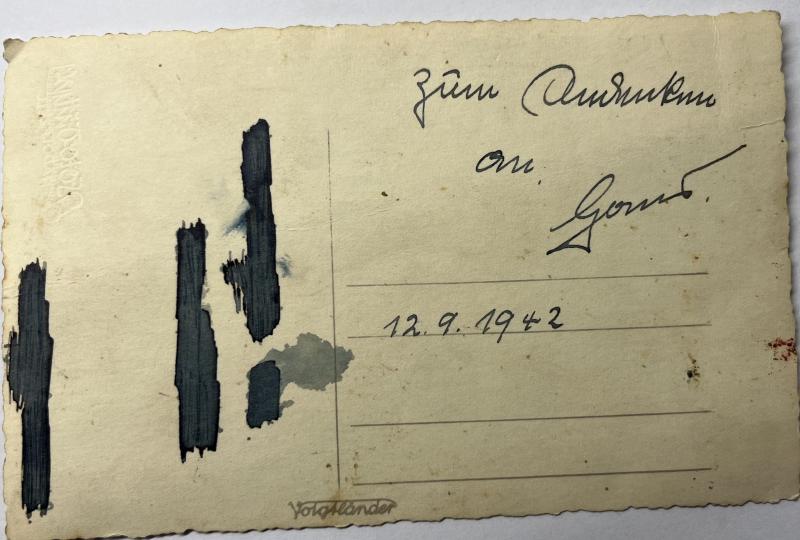 Zum Andenken
an
12.9.1942
Voigtländer